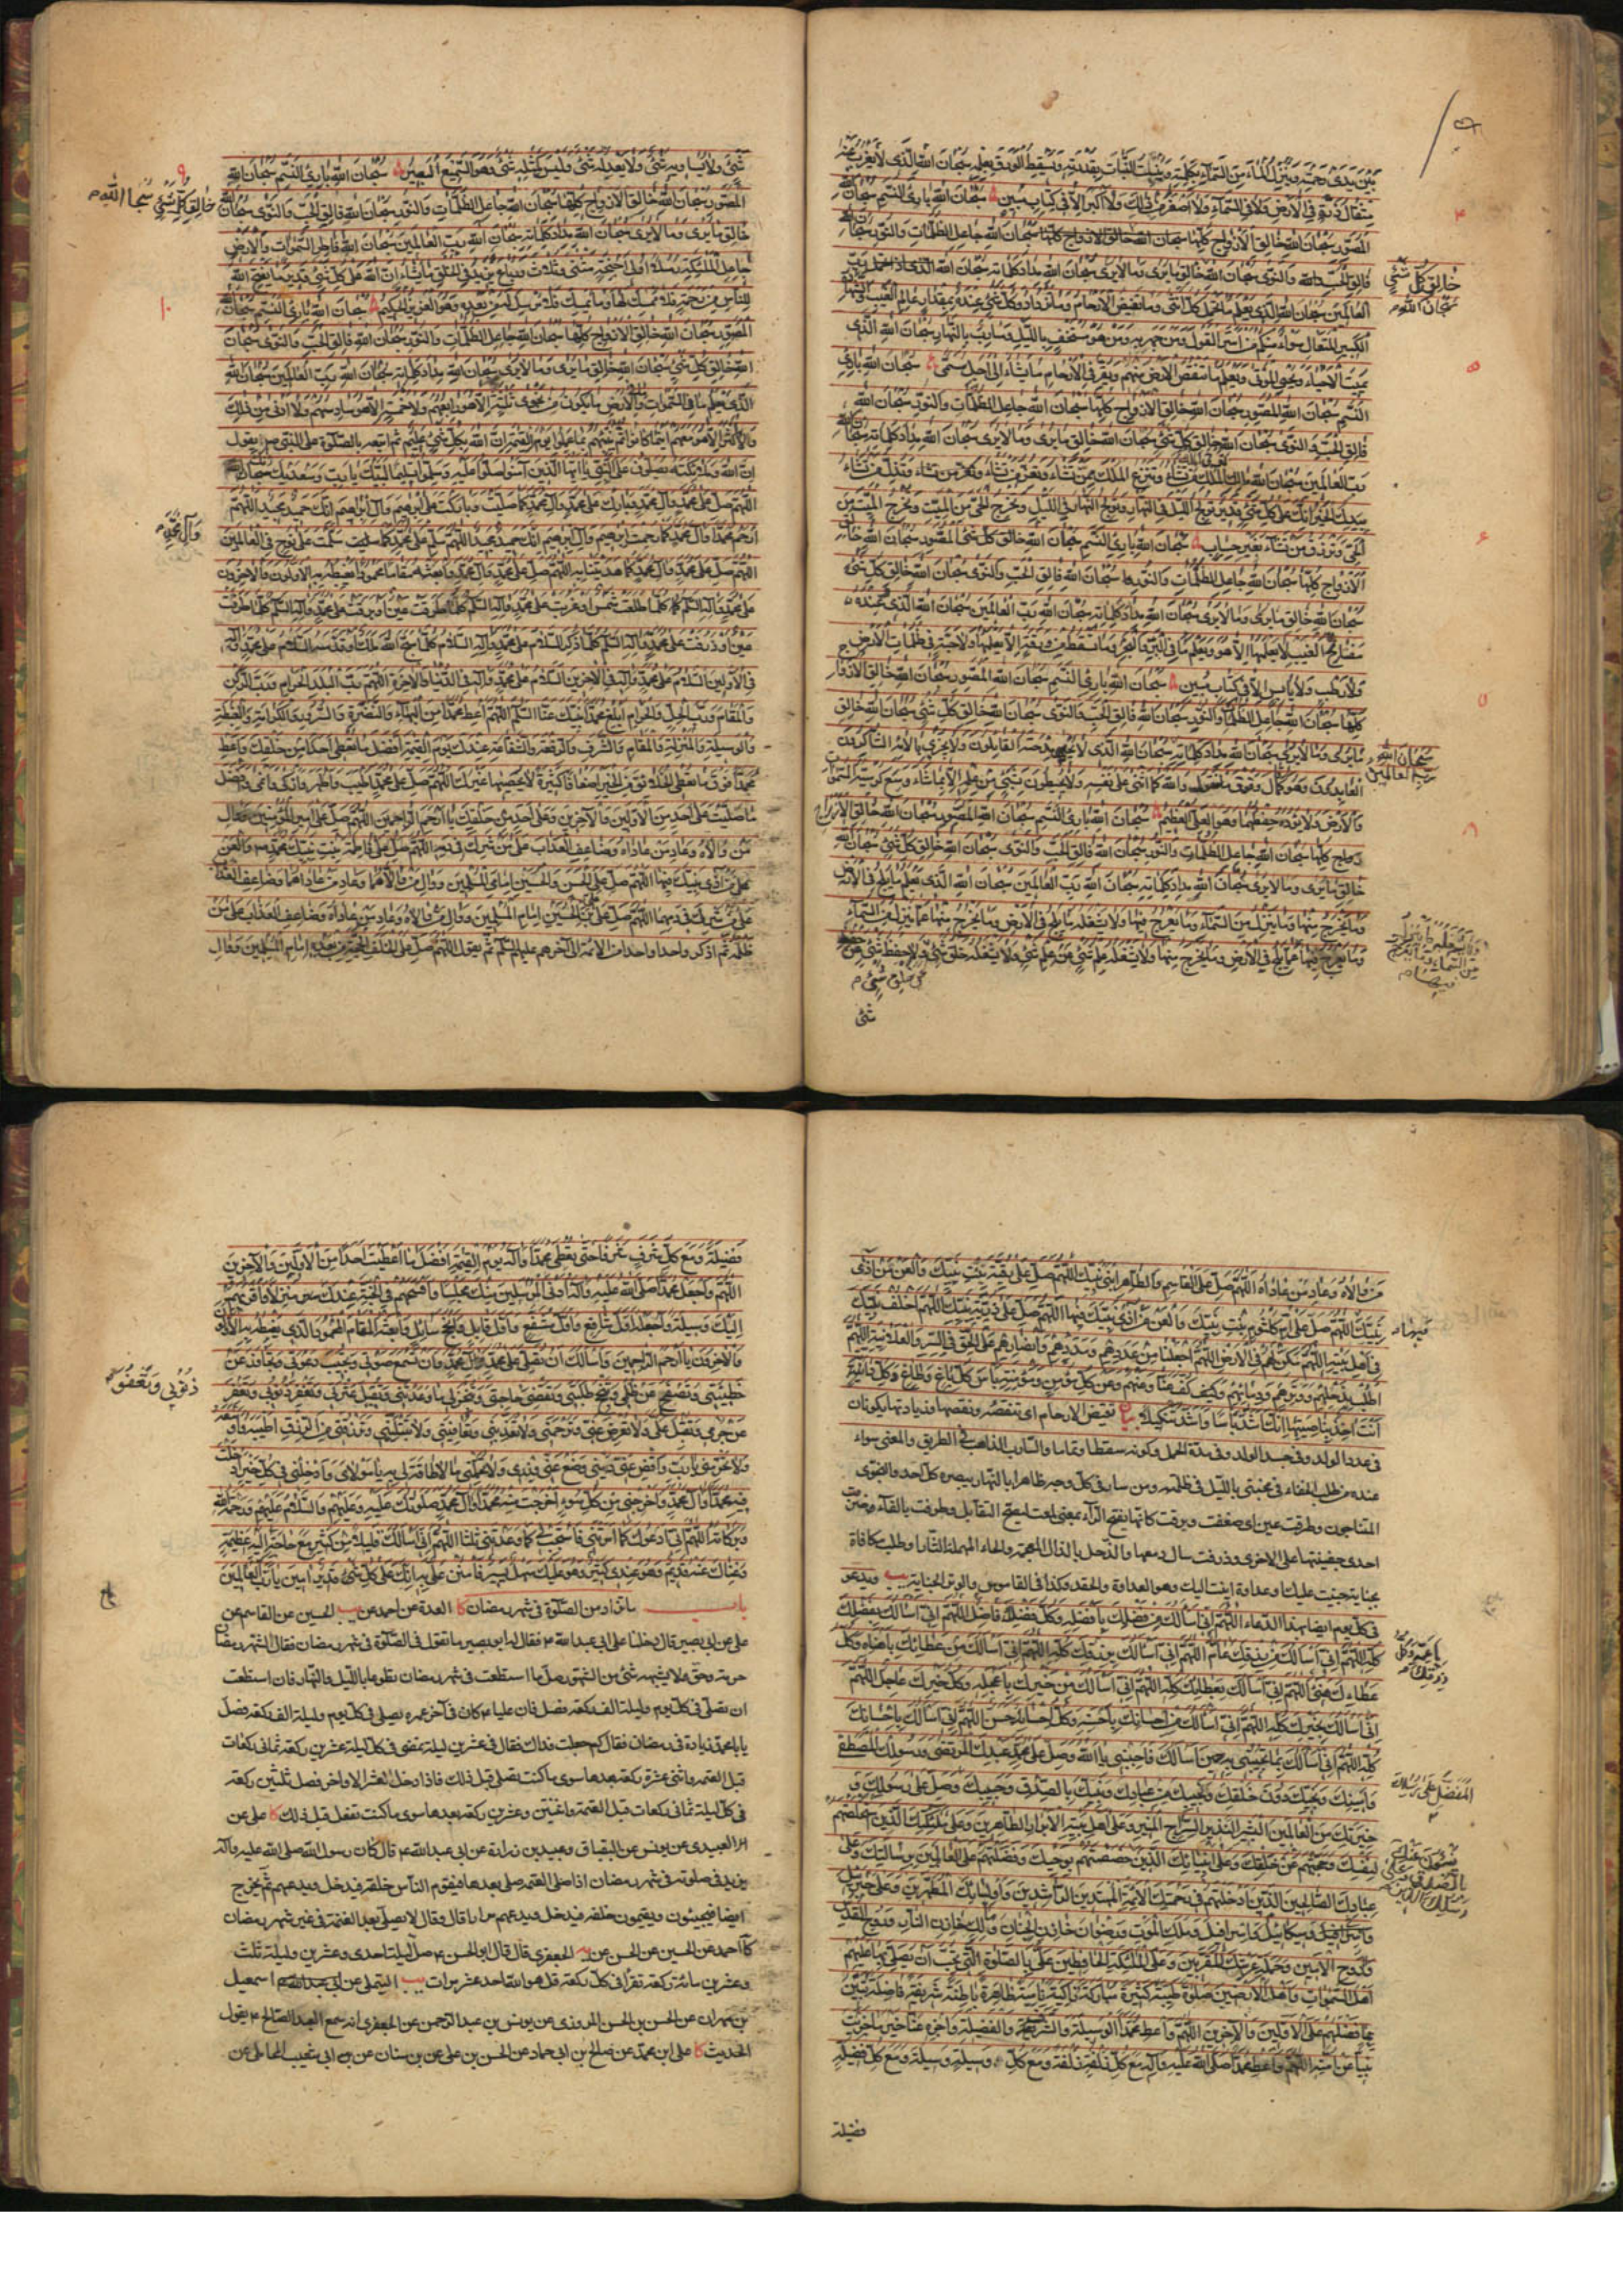 بين يدي رحمته وينزل الماء من السماء بكلمته وينبت النبات بقدرته ويسقط الورق بعلمه سبحان الله الذي لا يعزب عنه
مثقال ذرة في الارض ولا في السماء ولا اصغر من ذلك ولا اكبر الا في كتاب مبين سبحان الله بارئ النسم سبحان الله
المصور سبحان الله خالق الازواج كلها سبحان الله جاعل الظلمات والنور سبحان الله
فالق الحب والنوى سبحان الله خالق ما يرى وما لا يرى سبحان الله مداد كلماته سبحان الله رب
العالمين سبحان الله الذي يعلم ما تحمل كل انثى وما تغيض الارحام وما تزداد وكل شيء عنده بمقدار عالم الغيب والشهادة
الكبير المتعال سواء منكم من اسر القول ومن جهر به ومن هو مستخف بالليل وسارب بالنهار سبحان الله الذي
يميت الاحياء ويحيي الموتى ويعلم ما تنقص الارض منهم ويقر في الارحام ما يشاء الى اجل مسمى سبحان الله بارئ
النسم سبحان الله المصور سبحان الله خالق الازواج كلها سبحان الله جاعل الظلمات والنور سبحان الله
فالق الحب والنوى سبحان الله خالق كل شيء سبحان الله خالق ما يرى وما لا يرى سبحان الله مداد كلماته سبحان الله
رب العالمين سبحان الله مالك الملك تؤتي الملك من تشاء وتنزع الملك ممن تشاء وتعز من تشاء وتذل من تشاء
بيدك الخير انك على كل شيء قدير تولج الليل في النهار وتولج النهار في الليل وتخرج الحي من الميت وتخرج الميت من
الحي وترزق من تشاء بغير حساب سبحان الله بارئ النسم سبحان الله المصور سبحان الله خالق
الازواج كلها سبحان الله جاعل الظلمات والنور سبحان الله فالق الحب والنوى سبحان الله خالق كل شيء
سبحان الله خالق ما يرى وما لا يرى سبحان الله مداد كلماته سبحان الله رب العالمين سبحان الله الذي عنده
مفاتح الغيب لا يعلمها الا هو ويعلم ما في البر والبحر وما تسقط من ورقة الا يعلمها ولا حبة في ظلمات الارض
ولا رطب ولا يابس الا في كتاب مبين سبحان الله بارئ النسم سبحان الله المصور سبحان الله خالق الازواج
كلها سبحان الله جاعل الظلمات والنور سبحان الله فالق الحب والنوى سبحان الله خالق كل شيء سبحان الله خالق
ما يرى وما لا يرى سبحان الله مداد كلماته سبحان الله الذي لا يحصي مدحته القائلون ولا يجزي بآلائه الشاكرون
العابدون وهو كما قال وفوق ما نقول والله كما اثنى على نفسه ولا يحيطون بشيء من علمه الا بما شاء وسع كرسيه السموات
والارض ولا يؤده حفظهما وهو العلي العظيم سبحان الله بارئ النسم سبحان الله المصور سبحان الله خالق الازواج
كلها سبحان الله جاعل الظلمات والنور سبحان الله فالق الحب والنوى سبحان الله خالق كل شيء سبحان الله
خالق ما يرى وما لا يرى سبحان الله مداد كلماته سبحان الله رب العالمين سبحان الله الذي يعلم ما يلج في الارض
وما يخرج منها وما ينزل من السماء وما يعرج فيها ولا يشغله ما يلج في الارض وما يخرج منها عما ينزل من السماء
وما يعرج فيها عما يلج في الارض وما يخرج منها ولا يشغله علم شيء عن علم شيء ولا يشغله خلق شيء
عن خلق شيء
شئ
خالق كل شئ
سبحان الله
سبحان الله
رب العالمين
شيء ولا يساويه شيء ولا يعدله شيء وليس كمثله شيء وهو السميع البصير سبحان الله بارئ النسم سبحان الله
المصور سبحان الله خالق الازواج كلها سبحان الله جاعل الظلمات والنور سبحان الله فالق الحب والنوى سبحان الله
خالق ما يرى وما لا يرى سبحان الله مداد كلماته سبحان الله رب العالمين سبحان الله فاطر السموات والارض
جاعل الملائكة رسلا اولي اجنحة مثنى وثلاث ورباع يزيد في الخلق ما يشاء ان الله على كل شيء قدير ما يفتح الله
للناس من رحمة فلا ممسك لها وما يمسك فلا مرسل له من بعده وهو العزيز الحكيم سبحان الله بارئ النسم سبحان الله
المصور سبحان الله خالق الازواج كلها سبحان الله جاعل الظلمات والنور سبحان الله فالق الحب والنوى سبحان
الله خالق كل شيء سبحان الله خالق ما يرى وما لا يرى سبحان الله مداد كلماته سبحان الله رب العالمين سبحان الله
الذي يعلم ما في السموات وما في الارض ما يكون من نجوى ثلثة الا هو رابعهم ولا خمسة الا هو سادسهم ولا ادنى من ذلك
ولا اكثر الا هو معهم اينما كانوا ثم ينبئهم بما عملوا يوم القيمة ان الله بكل شيء عليم ثم اتبعه بالصلوة على النبي يقول
ان الله وملائكته يصلون على النبي يا ايها الذين آمنوا صلوا عليه وسلموا تسليما لبيك يا رب وسعديك سبحانك
اللهم صل على محمد وآل محمد وبارك على محمد وآل محمد كما صليت وباركت على ابرهيم وآل ابرهيم انك حميد مجيد اللهم
ارحم محمدا وآل محمد كما رحمت ابرهيم وآل ابرهيم انك حميد مجيد اللهم سلم على محمد كما سلمت على نوح في العالمين
اللهم صل على محمد وآل محمد كما هديتنا به اللهم صل على محمد وآل محمد وابعثه مقاما محمودا يغبطه به الاولون والآخرون
على محمد وآله السلام كلما طلعت شمس او غربت على محمد وآله السلم كلما طرفت عين او برقت على محمد وآله السلم كلما طرفت
عين او ذرفت على محمد وآله السلم كلما ذكر السلام على محمد وآله السلام كلما سبح الله ملك او قدسه السلام على محمد وآله
في الاولين السلام على محمد وآله في الآخرين السلام على محمد وآله في الدنيا والآخرة اللهم رب البلد الحرام ورب الركن
والمقام ورب الحل والحرام ابلغ محمدا نبيك عنا السلم اللهم اعط محمدا من البهاء والنضرة والسرور والكرامة والغبطة
والوسيلة والمنزلة والمقام والشرف والرفعة والشفاعة عندك يوم القيمة افضل ما تعطي احدا من خلقك واعط
محمدا فوق ما تعطي الخلائق من الخير اضعافا كثيرة لا يحصيها غيرك اللهم صل على محمد اطيب واطهر وازكى وانمى وافضل
ما صليت على احد من الاولين والآخرين وعلى احد من خلقك يا ارحم الراحمين اللهم صل على امير المؤمنين ووال
من والاه وعاد من عاداه وضاعف العذاب على من شرك في دمه اللهم صل على فاطمة بنت نبيك محمد والعن
من آذى نبيك فيها اللهم صل على الحسن والحسين امامي المسلمين ووال من والاهما وعاد من عاداهما وضاعف العذاب
على من شرك في دمهما اللهم صل على علي بن الحسين امام المسلمين ووال من والاه وعاد من عاداه وضاعف العذاب على من
ظلمه ثم اذكر واحدا واحدا من الائمة الى آخرهم عليهم السلم ثم يقول اللهم صل على الخلف امام المسلمين ووال
خالق كل شئ سبحان الله
وآل محمد
من والاه وعاد من عاداه اللهم صل على القاسم والطاهر ابني نبيك اللهم صل على رقية بنت نبيك والعن من آذى
نبيك اللهم صل على ام كلثوم بنت نبيك والعن من آذى نبيك فيها اللهم صل على ذرية نبيك اللهم اخلف نبيك
في اهل بيته اللهم مكن لهم في الارض اللهم اجعلنا من عددهم ومددهم وانصارهم على الحق في السر والعلانية اللهم
اطلب بذحلهم ووترهم ودمائهم وكف عنا وعنهم وعن كل مؤمن ومؤمنة باس كل باغ وطاغ وكل دابة
انت آخذ بناصيتها انك اشد باسا واشد تنكيلا بيان تغيض الارحام اي تنقصه ونقصها وزيادتها يكونان
في عدد الولد وفي جسد الولد وفي مدة الحمل وكونه سقطا وتماما والسارب الذاهب في الطريق والمعنى سواء
عنده من طلب الخفاء في مختبئ بالليل في ظلمته ومن سار في كل وجه ظاهرا بالنهار يبصره كل احد والنجوى
المتناجون وطرفت عين اي ضعفت وبرقت كانها بفتح الراء بمعنى لمعت ليصح التقابل وطرفت بالفاء
احدى جفنيها على الاخرى وذرفت سال دمعها والذحل بالذال المعجمة والحاء المهملة الثار او طلب مكافاة
بجناية جنيت عليك او عداوة اتيت اليك وهو العداوة والحقد وكذا في القاموس والوتر الجناية يب ويدعو
في كل يوم ايضا بهذا الدعاء اللهم اني اسألك من فضلك بافضله وكل فضلك فاضل اللهم اني اسألك بفضلك
كله اللهم اني اسألك من رزقك عام اللهم اني اسألك برزقك كله اللهم اني اسألك من عطائك باهنأه وكل
عطائك هنئ اللهم اني اسألك بعطائك كله اللهم اني اسألك من خيرك باعجله وكل خيرك عاجل اللهم
اني اسألك بخيرك كله اللهم اني اسألك من احسانك باحسنه وكل احسانك حسن اللهم اني اسألك باحسانك
كله اللهم اني اسألك بما تجيبني به حين اسألك فاجبني يا الله وصل على محمد عبدك المرتضى ورسولك المصطفى
وامينك ونجيك دون خلقك ونجيبك من عبادك ونبيك بالصدق وحبيبك وصل على رسولك و
خيرتك من العالمين البشير النذير السراج المنير وعلى اهل بيته الابرار الطاهرين وعلى ملائكتك الذين استخلصتهم
لنفسك وحجبتهم عن خلقك وعلى انبيائك الذين وفضلتهم على العالمين برسالتك وعلى
عبادك الصالحين الذين ادخلتهم في رحمتك الائمة المهتدين الراشدين واوليائك المطهرين وعلى جبرئيل
وميكائيل واسرافيل وملك الموت ورضوان خازن الجنان ومالك خازن النار وروح القدس
والروح الامين وحملة عرشك المقربين وعلى الملكين الحافظين علي بالصلوة التي تحب ان يصلي بها عليهم
اهل السموات واهل الارضين صلوة طيبة كثيرة مباركة زاكية نامية ظاهرة باطنة شريفة فاضلة تبين
بها فضلهم على الاولين والآخرين اللهم واعط محمدا الوسيلة والشرف والفضيلة واجزه عنا خير ما جزيت
نبيا عن امته اللهم واعط محمدا صلى الله عليه وآله مع كل زلفة زلفة ومع كل وسيلة وسيلة ومع كل فضيلة
فضيلة
فضيلة ومع كل شرف شرفا حتى تعطي محمدا وآله يوم القيمة افضل ما اعطيت احدا من الاولين والآخرين
اللهم واجعل محمدا صلى الله عليه وآله ادنى المرسلين منك مجلسا وافسحهم في الجنة عندك منزلا واقربهم
اليك وسيلة واجعله اول شافع واول مشفع واول قائل وانجح سائل وابعثه المقام المحمود الذي يغبطه به الاولون
والآخرون يا ارحم الراحمين واسألك ان تصلي على محمد وآل محمد وان تسمع صوتي وتجيب دعوتي وتجاوز عن
خطيئتي وتصفح عن ظلمي وتنجح طلبتي وتقضي حاجتي وتنجز لي ما وعدتني وتقيل عثرتي وتغفر ذنوبي وتعفو
عن جرمي وتقبل علي ولا تعرض عني وترحمني ولا تعذبني وتعافيني ولا تبتليني وترزقني من الرزق اطيبه واوسعه
ولا تحرمني يا رب واقض عني ديني وضع عني وزري ولا تحملني ما لا طاقة لي به يا مولاي وادخلني في كل خير ادخلت
فيه محمدا وآل محمد واخرجني من كل سوء اخرجت منه محمدا وآل محمد صلواتك عليه وعليهم والسلام عليهم ورحمة الله
وبركاته اللهم اني ادعوك كما امرتني فاستجب لي كما وعدتني ثلثا اللهم اني اسألك قليلا من كثير مع حاجة اليه عظيمة
وغناك عنه قديم وهو عندي كثير وهو عليك سهل يسير فامنن علي به انك على كل شيء قدير آمين يا رب العالمين
باب ما يزاد من الصلوة في شهر رمضان كا العدة عن احمد عن يب الحسين عن القاسم عن
علي عن ابي بصير قال دخلنا على ابي عبدالله ع فقال له ابو بصير ما تقول في الصلوة في شهر رمضان فقال لشهر رمضان
حرمة وحق لا يشبهه شئ من الشهور صل ما استطعت في شهر رمضان تطوعا بالليل والنهار فان استطعت
ان تصلي في كل يوم وليلة الف ركعة فصل فان عليا ع كان في آخر عمره يصلي في كل يوم وليلة الف ركعة فصل
يا با محمد زيادة في رمضان فقال كم جعلت فداك فقال في عشرين ليلة تمضي في كل ليلة عشرين ركعة ثماني ركعات
قبل العتمة واثنتي عشرة ركعة بعدها سوى ما كنت تصلي قبل ذلك فاذا دخل العشر الاواخر فصل ثلثين ركعة
في كل ليلة ثماني ركعات قبل العتمة واثنتين وعشرين ركعة بعدها سوى ما كنت تفعل قبل ذلك كا علي عن
العبيدي عن يونس عن البقباق وعبيد بن زرارة عن ابي عبدالله ع قال كان رسول الله صلى الله عليه وآله
يزيد في صلوته في شهر رمضان اذا صلى العتمة صلى بعدها فيقوم الناس خلفه فيدخل ويدعهم ثم يخرج
ايضا فيجيئون ويقومون خلفه فيدخل ويدعهم مرارا قال وقال لا يصلي بعد العتمة في غير شهر رمضان
كا احمد عن الحسين عن الحسن عن الجعفري قال قال ابو الحسن ع صل ليلة احدى وعشرين وليلة ثلث
وعشرين مائة ركعة تقرأ في كل ركعة قل هو الله احد عشر مرات يب التيملي عن اسمعيل
بن مهران عن الحسن بن الحسن المروزي عن يونس بن عبدالرحمن عن الجعفري انه سمع العبد الصالح ع يقول
الحديث كا علي بن محمد عن صالح بن ابي حماد عن الحسن بن علي عن بن سنان عن ابي شعيب المحاملي عن
ذنوبي وتعفو